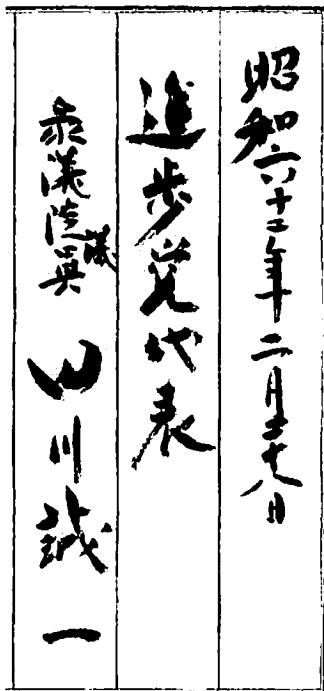 昭和六十二年二月二十八日
進歩党代表
衆議院議員 田川誠一